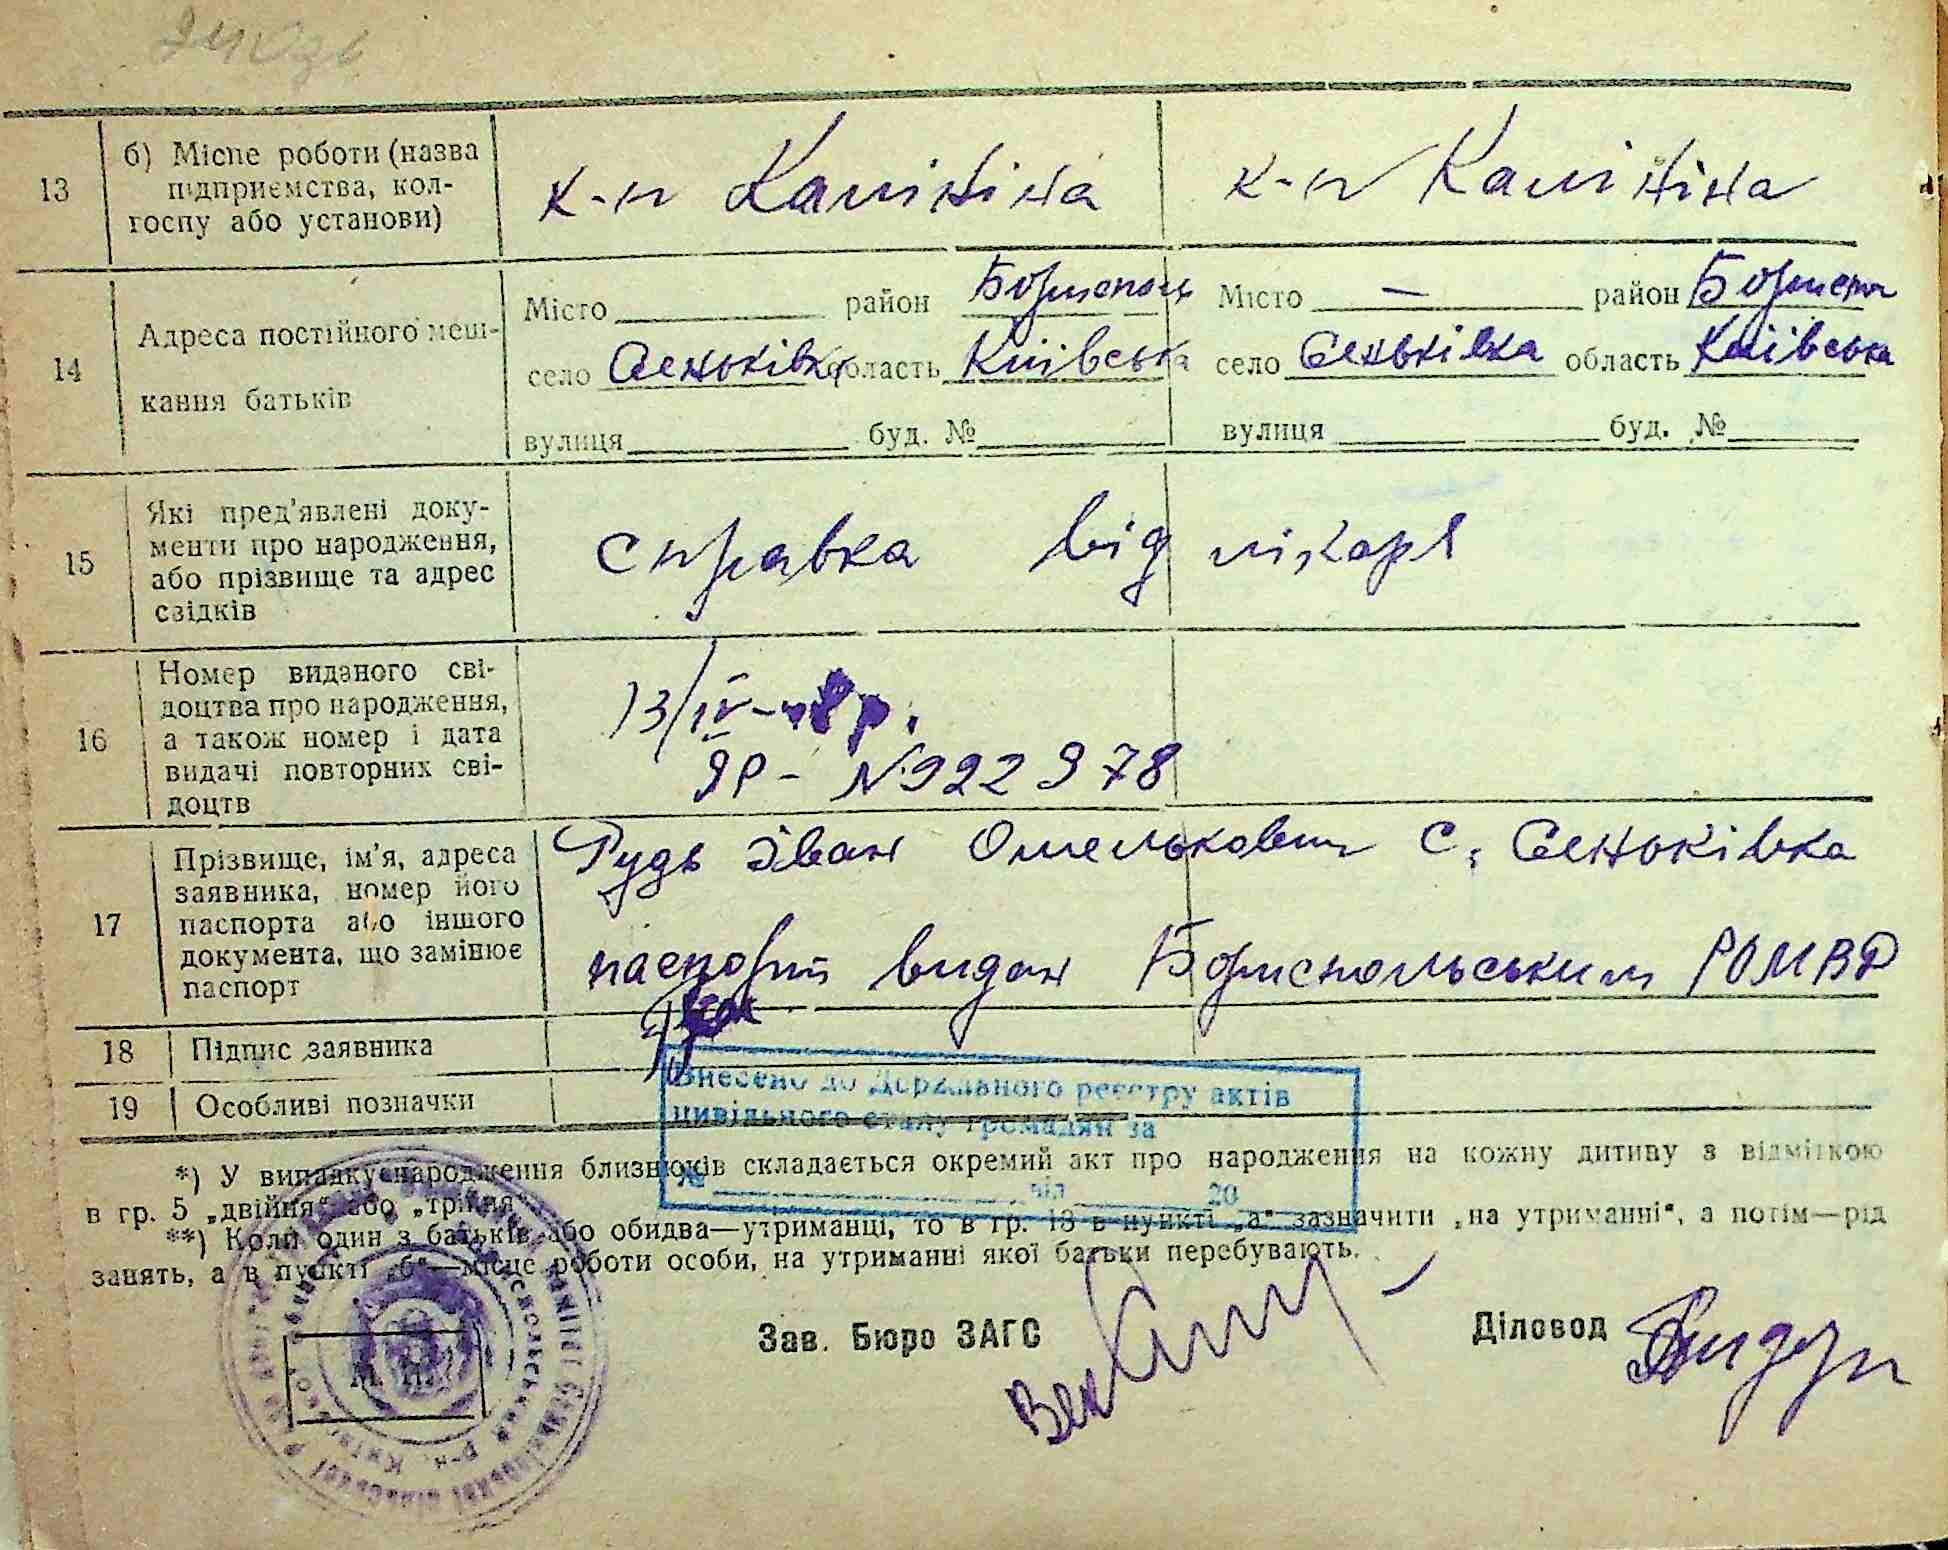 13
б) Місце роботи (назва
підприємства, кол-
госпу або установи)
к-п Калініна
к-п Калініна
14
Адреса постійного меш-
кання батьків
Місто район Бориспольс
село Сеньківка область Київська
вулиця буд. №
Місто — район Борисп
село Сеньківка область Київська
вулиця буд. №
15
Які пред'явлені доку-
менти про народження,
або прізвище та адрес
свідків
справка від лікаря
16
Номер виданого сві-
доцтва про народження,
а також номер і дата
видачі повторних сві-
доцтв
13/IV-48 р.
ЯР- № 922978
17
Прізвище, ім'я, адреса
заявника, номер його
паспорта або іншого
документа, що замінює
паспорт
Рудь Іван Омелькович с. Сеньківка
паспорт видан Бориспольським РОМВД
18
Підпис заявника
19
Особливі позначки
Внесено до Державного реєстру актів
цивільного стану громадян за
№ від 20
*) У випадку народження близнюків складається окремий акт про народження на кожну дитину з відміткою
в гр. 5 „двійня“ або „трійня“.
**) Коли один з батьків або обидва—утриманці, то в гр. 13 в пункті „а“ зазначити „на утриманні“, а потім—рід
занять, а в пункті „б“—місце роботи особи, на утриманні якої батьки перебувають.
М. П.
Зав. Бюро ЗАГС
Діловод